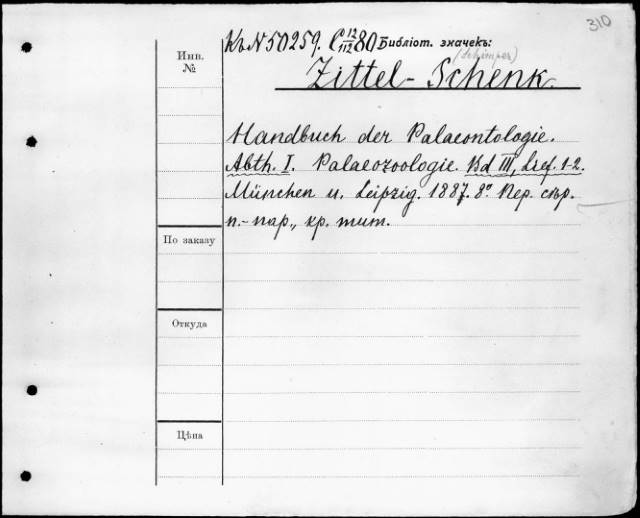 310
Къ № 50259. C 12/112 80 Библіот. значекъ:
Инв. №
(Schimper)
Zittel-Schenk.
Handbuch der Palaeontologie.
Abth. I. Palaeozoologie. Bd III, Lief. 1-2.
München u. Leipzig. 1887. 8º. Пер. сѣр.
п.-пар., кр. тит.
По заказу
Откуда
Цѣна